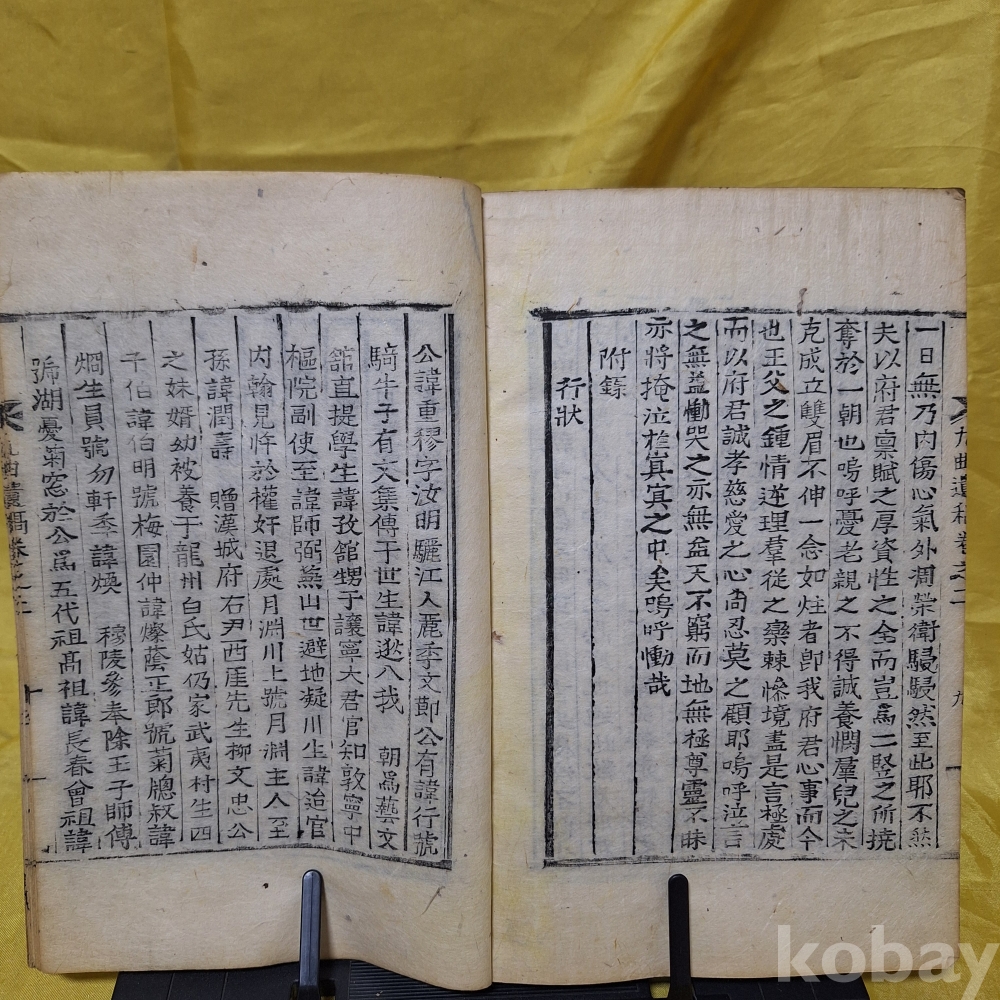 一日無乃內傷心氣外凋榮衛駸駸然至此耶不然
夫以府君禀賦之厚資性之全而豈爲二竪之所撓
奪於一朝也嗚呼憂老親之不得誠養憫羣兒之未
克成立雙眉不伸一念如炷者卽我府君心事而今
也王父之鍾情逆理羣從之欒棘慘境盡是言極處
而以府君誠孝慈愛之心尙忍莫之顧耶嗚呼泣言
之無益慟哭之亦無益天不窮而地無極尊靈不昧
亦將掩泣於冥冥之中矣嗚呼慟哉
附錄
行狀
九曲遺稿卷之二 九
公諱重穆字汝明驪江人麗季文節公有諱行號
騎牛子有文集傳于世生諱逖入我 朝爲藝文
館直提學生諱孜館甥于讓寧大君官知敦寧中
樞院副使至諱師弼燕山世避地凝川生諱迨官
內翰見忤於權奸退處月淵川上號月淵主人至
孫諱潤壽 贈漢城府右尹西厓先生柳文忠公
之妹婿幼被養于龍州白氏姑仍家武夷村生四
子伯諱伯明號梅園仲諱燦蔭正郞號菊牕叔諱
烱生員號勿軒季諱煥 穆陵參奉除王子師傅
號湖憂菊窓於公爲五代祖高祖諱長春曾祖諱
九曲遺稿卷之二 十
kobay